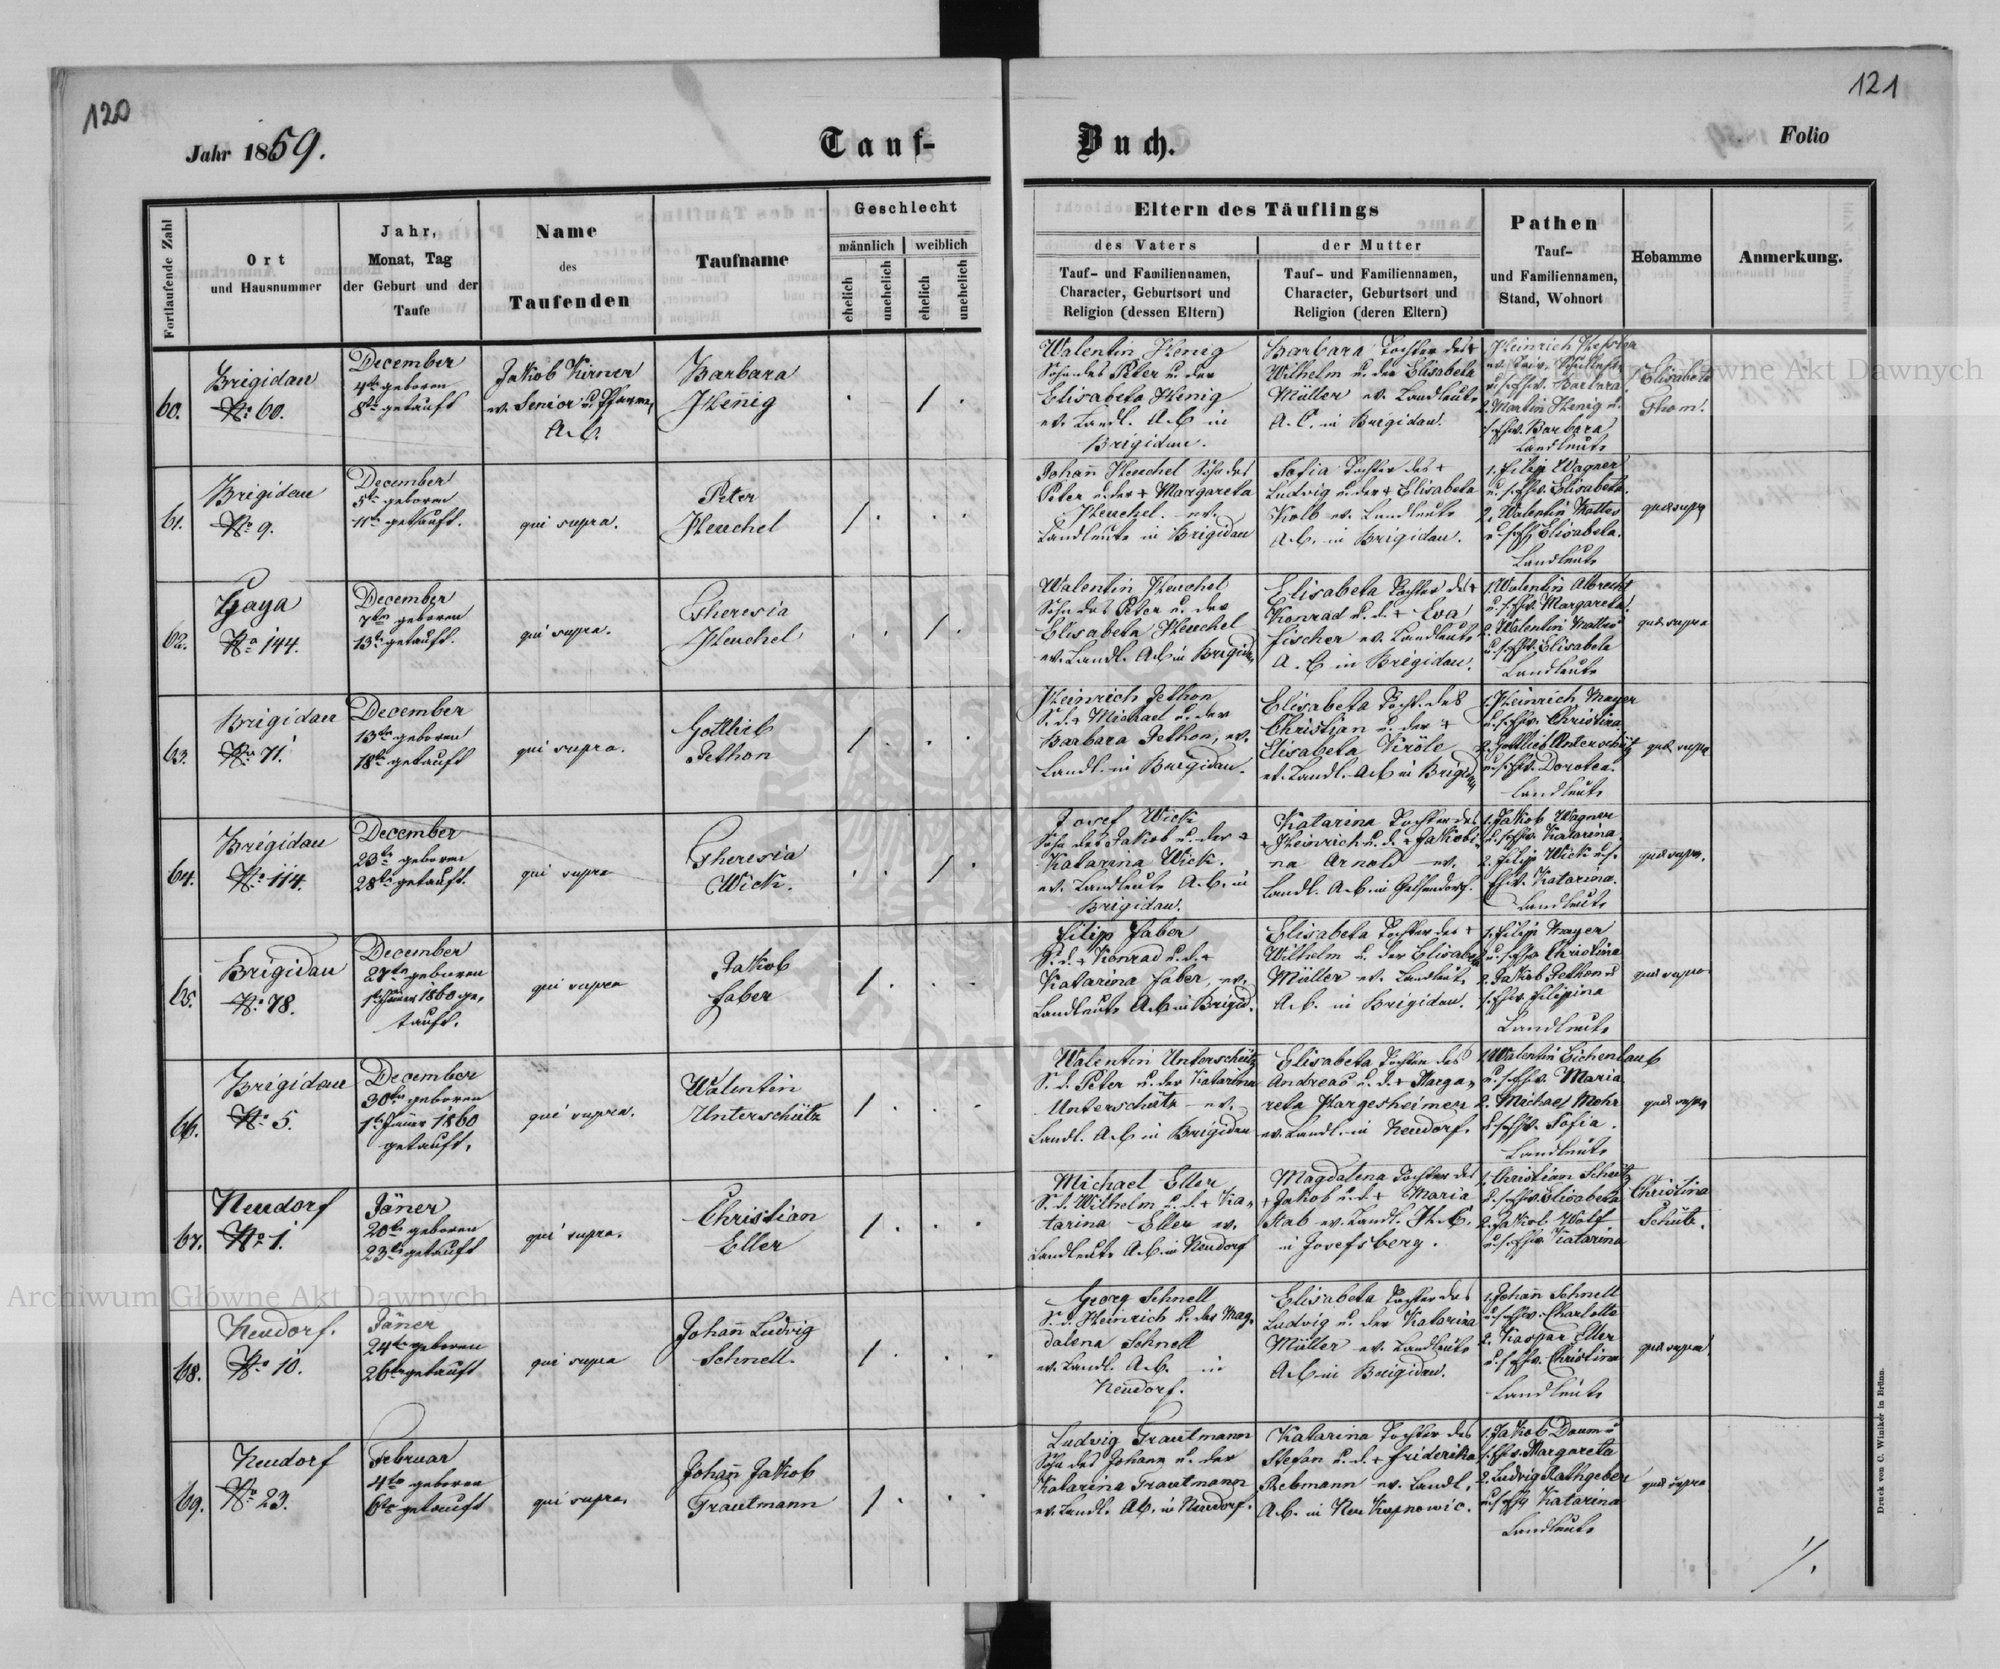 120
121
Jahr 1859.
Tauf-
Buch.
Folio
Fortlaufende Zahl
Ort
und Hausnummer
Jahr,
Monat, Tag
der Geburt und der
Taufe
Name
des
Taufenden
Taufname
Geschlecht
männlich
weiblich
ehelich
unehelich
ehelich
unehelich
Eltern des Täuflings
des Vaters
Tauf- und Familiennamen,
Character, Geburtsort und
Religion (dessen Eltern)
der Mutter
Tauf- und Familiennamen,
Character, Geburtsort und
Religion (deren Eltern)
Pathen
Tauf-
und Familiennamen,
Stand, Wohnort
Hebamme
Anmerkung.
60.
Brigidau
No 60.
December
4te geboren
8te getauft
Jakob Kirner
ev. Senior u. Pfarrer,
A.C.
Barbara
Henig
Walentin Henig
Sohn des Peter u. der
Elisabeta Henig
ev. Landl. A.C in
Brigidau.
Barbara Tochter des +
Wilhelm u. der Elisabeta
Müller ev. Landleute
A.C. in Brigidau.
u. s. Ehw. Barbara
2. Martin Henig u.
s. Ehw. Barbara
Landleute
Elisabeta
Thom.
61.
Brigidau
No 9.
December
5te geboren
11te getauft.
qui supra.
Peter
Heuchel
Johann Heuchel Sohn des
Peter u. der + Margareta
Heuchel ev.
Landleute in Brigidau
Sofia Tochter des +
Ludwig u. der + Elisabeta
Kolb ev. Landleute
A.C. in Brigidau.
1. Filip Wagner
u. s. Ehw. Elisabeta.
2. Walentin
u. s. Ehw Elisabeta.
Landleute
quae supra
62.
Gaya
No 144.
December
7ten geboren
13te getauft.
qui supra.
Theresia
Heuchel
Walentin Heuchel
Sohn des Peter u. der
Elisabeta Heuchel
ev. Landl. A.C in Brigid,
Elisabeta Tochter des +
Konrad u. d. + Eva
Fischer ev. Landleute
A. C in Brigidau.
1. Walentin Albrecht
u. s. Ehw. Margareta.
2. Walentin
u. s. Ehw. Elisabeta
Landleute
quae supra
63.
Brigidau
No 71.
December
13te geboren
18te getauft
qui supra.
Gottlieb
Jethon
Heinrich Jethon
S. d. + Michael u. der
Barbara Jethon, ev.
Landl. in Brigidau.
Elisabeta Tocht. des
Christian u. der +
Elisabeta
ev. Landl. A.C in Brigid,
1. Heinrich Mayer
u. s. Ehw. Christina
2. Gottlieb Unterschütz
u. s. Ehw. Dorotea.
Landleute
quae supra
64.
Brigidau
No 114.
December
23te geboren
28te getauft.
qui supra
Theresia
Wick.
Josef Wick
Sohn des Jakob u. der +
Katarina Wick.
ev. Landleute A.C. in
Brigidau.
Katarina Tochter des
+ Heinrich u. d. + Jakobi
na Arnold ev.
Landl. A.C. in Gelsendorf.
1. Jakob Wagner
u. s. Ehw. Katarina.
2. Filip Wick u. s.
Ehw. Katarina.
Landleute
quae supra.
65.
Brigidau
No 78.
December
27te geboren
1te Jäner 1860 ge,
tauft.
qui supra
Jakob
Faber
Filipp Faber
S. d. + Konrad u. d. +
Katarina Faber, ev.
Landleute A.C in Brigid.
Elisabeta Tochter des +
Wilhelm u. der Elisabeta
Müller ev. Landleut,
A.C. in Brigidau.
1. Filip Mayer
u. s. Ehw Christina
2. Jakob Jethon u
s. Ehw. Filipina
Landleute
quae supra
66.
Brigidau
No 5.
December
30te geboren
1te Jäner 1860
getauft.
qui supra.
Walentin
Unterschütz
Walentin Unterschütz
S. d. Peter u. der Katarina
Unterschütz ev.
Landl. A.C in Brigidau
Elisabeta Tochter des
Andreas u. d. + Marga,
reta Hargesheimer
ev. Landl. in Neudorf.
1. Walentin Eichenlaub
u. s. Ehw. Maria
2. Michael Mohr
u. s. Ehw. Sofia.
Landleute
quae supra
67.
Neudorf
No 1.
Jäner
20te geboren
23te getauft
qui supra.
Christian
Eller
Michael Eller
S. d. Wilhelm u. d. + Ka,
tarina Eller ev.
Landleute A.C. in Neudorf
Magdalena Tochter des
+ Jakob u. d. + Maria
Stab ev. Landl. H.C.
in Josefsberg.
1. Christian Schütz
u. s. Ehw. Elisabeta
2. Jakob Wolf
u. s. Ehw. Katarina
Christina
Schütz.
68.
Neudorf.
No 10.
Jäner
24te geboren
26te getauft
qui supra
Johann Ludvig
Schnell.
Georg Schnell
S. d. Heinrich u. der Mag,
dalena Schnell
ev. Landl. A.C. in
Neudorf.
Elisabeta Tochter des
Ludvig u. der Katarina
Müller ev. Landleute
A.C in Brigidau.
1. Johann Schnell
u. s. Ehw. Charlotte
2. Kaspar Eller
u. s. Ehw. Christina
Landleute
quae supra
69.
Neudorf
No 23.
Februar
4te geboren
6te getauft
qui supra,
Johann Jakob
Trautmann
Ludvig Trautmann
Sohn des Johann u. der
Katarina Trautmann
ev. Landl. A.C. in Neudorf.
Katarina Tochter des
Stefan u. d. + Friderika
Rebmann ev. Landl.
A.C. in Neu Kupnowic.
1. Jakob Daum u
s. Ehw. Margareta
2. Ludvig Rathgeber
u. s. Ehw Katarina
Landleute
quae supra
Druck von C. Winiker in Brünn.
Archiwum Główne Akt Dawnych